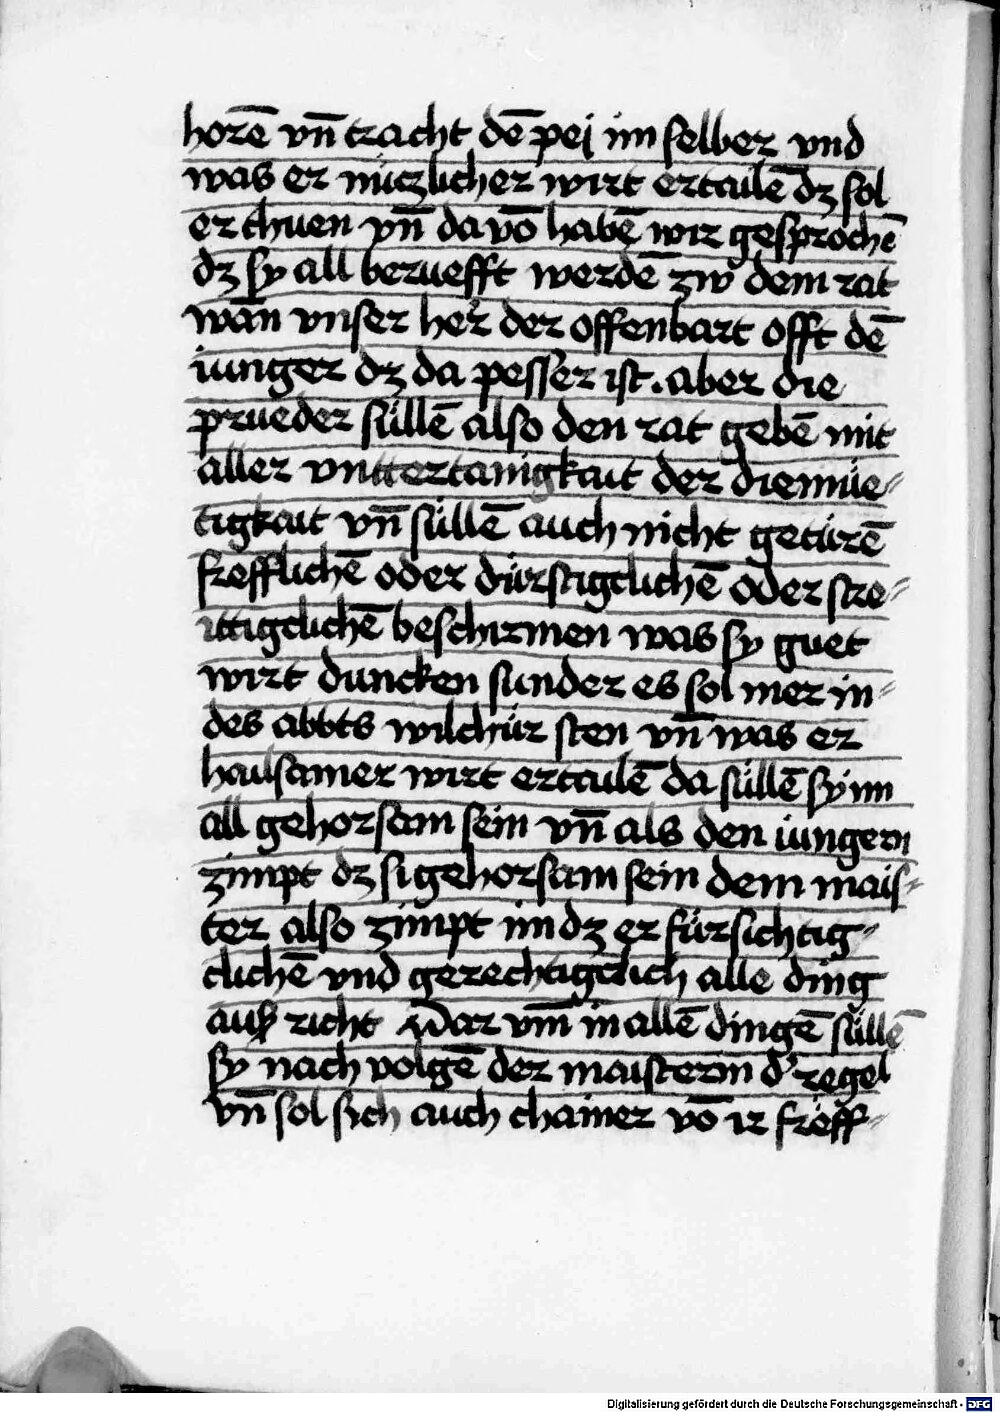 horē vn̄ tracht dē pej im selber vnd
was er nüczlicher wirt ertailē dz sol
er thuen vn̄ da võ habē wir gesprochē
dz sy all beruefft werdē zw dem rat
wan̄ vnser her̄ der offenbart offt dē
iunger dz da pesser ist. aber die
prueder süllē also den rat gebē mit
aller vnttertanigkait der diemüe⸗
tigkait vn̄ süllē auch nicht getürē
frefflichē oder dürstigclichē oder stre⸗
ittigclichē beschirmen was sy guet
wirt duncken sunder es sol mer in⸗
des abbts wilchür sten vn̄ was er
hailsamer wirt ertailē da süllē sy im
all gehorsam sein vn̄ als den iungern
zimpt dz si gehorsam sein dem mais⸗
ter also zimpt im dz er fürsichtig⸗
clichē vnd gerechtigclich alle ding
auß richt Dar vm̄ in allē dingē süllē
sy nach volgē der maisterin d' regel
vn̄ sol sich auch chainer võ ir freff⸗
Digitalisierung gefördert durch die Deutsche Forschungsgemeinschaft - DFG